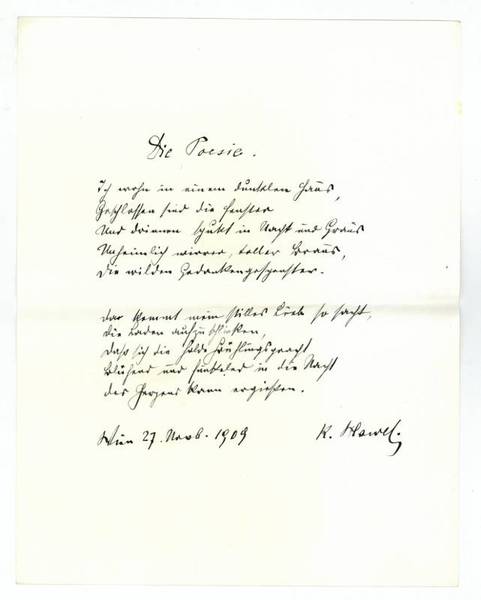 Die Poesie.
Ich wohn in einem dunklen Haus,
Geschlossen sind die Fenster
Und drinnen spukt in Nacht und Graus
Unheimlich wirrer, toller Braus,
Die wilden Gedankengespenster.
Da kommt mein stilles Lieb so sacht,
Die Laden aufzuschließen,
Daß sich die holde Frühlingspracht
Blühend und funkelnd in die Nacht
Des Herzens kann ergießen.
Wien 27. Novb. 1909
K. Hawel.